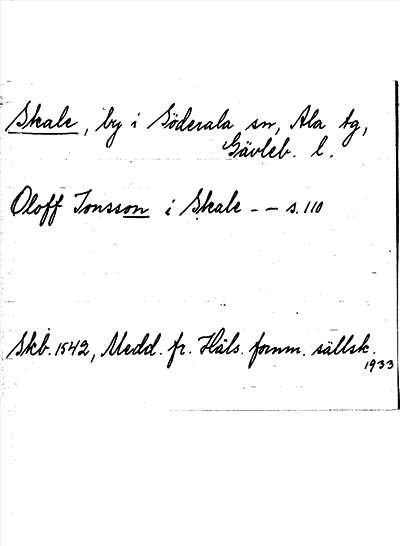 Skale, by i Söderala sn, Ala tg,
Gävleb. l.
Oloff Jonsson i Skale - - s. 110
Skb. 1542, Medd. fr. Häls. fornm. sällsk.
1933